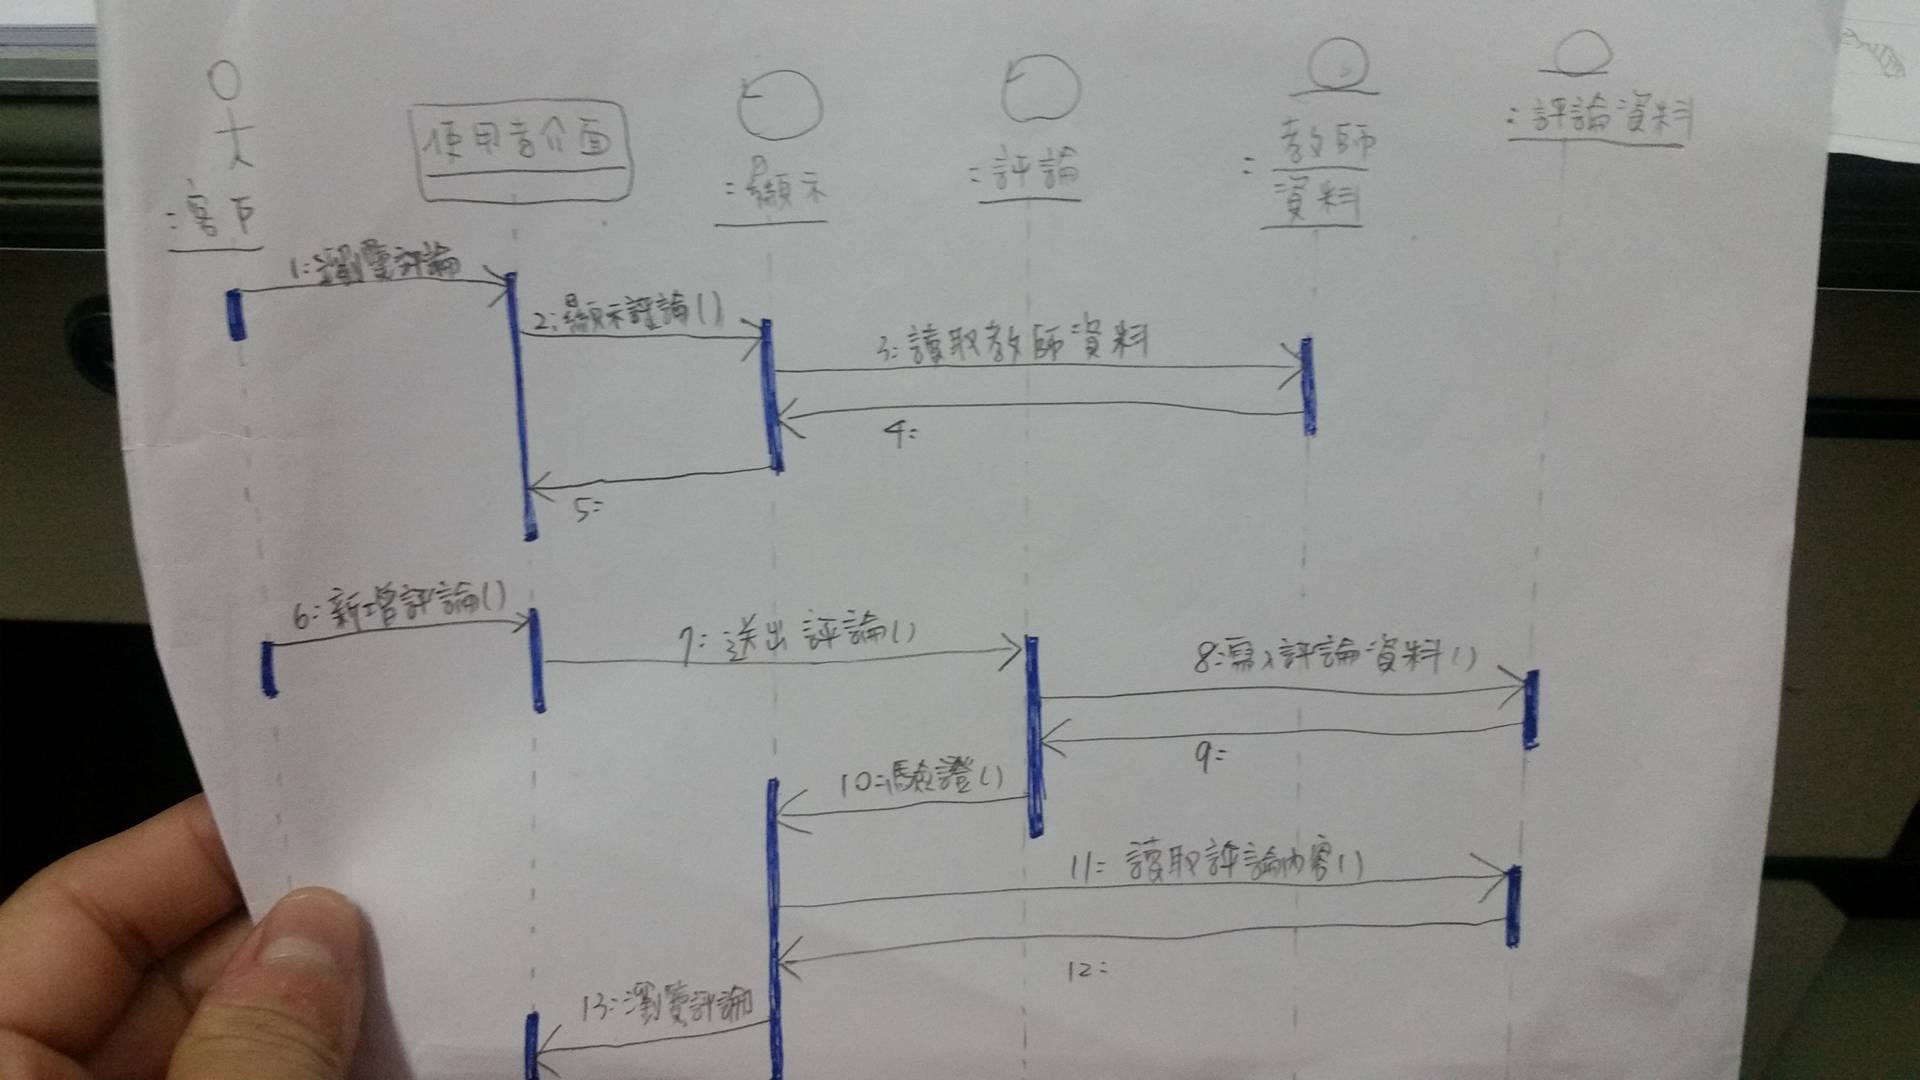 :客戶
使用者介面
:顯示
:評論
:教師
資料
:評論資料
1:瀏覽評論
2:顯示評論()
3:讀取教師資料
4:
5:
6:新增評論()
7:送出評論()
8:寫入評論資料()
9:
10:驗證()
11:讀取評論內容()
12:
13:瀏覽評論